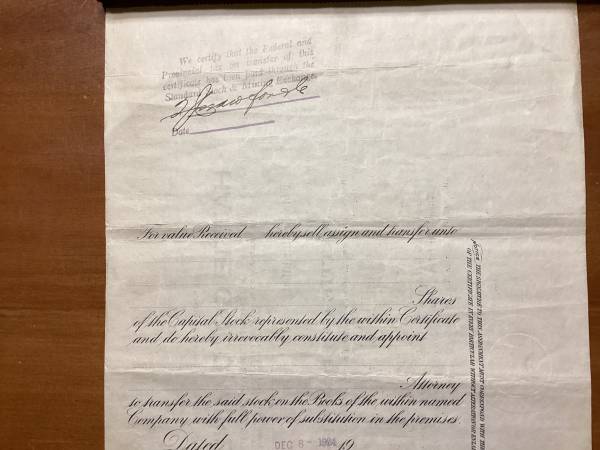 We certify that the Federal and
Provincial tax on transfer of this
certificate has been paid through the
Standard Stock & Mining Exchange.
Date
For value Received hereby sell, assign and transfer unto
Shares
of the Capital Stock represented by the within Certificate
and do hereby irrevocably constitute and appoint
Attorney
to transfer the said stock on the Books of the within named
Company with full power of substitution in the premises.
Dated DEC 8 - 1924 19
Notice THE SIGNATURE TO THIS ASSIGNMENT MUST CORRESPOND WITH THE
OF THE CERTIFICATE IN EVERY PARTICULAR WITHOUT ALTERATION OR